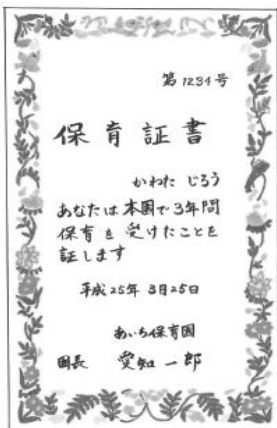 第1234号
保育証書
かわた じろう
あなたは本園で3年間
保育を受けたことを
証します
平成25年 3月25日
あいち保育園
園長 愛知一郎